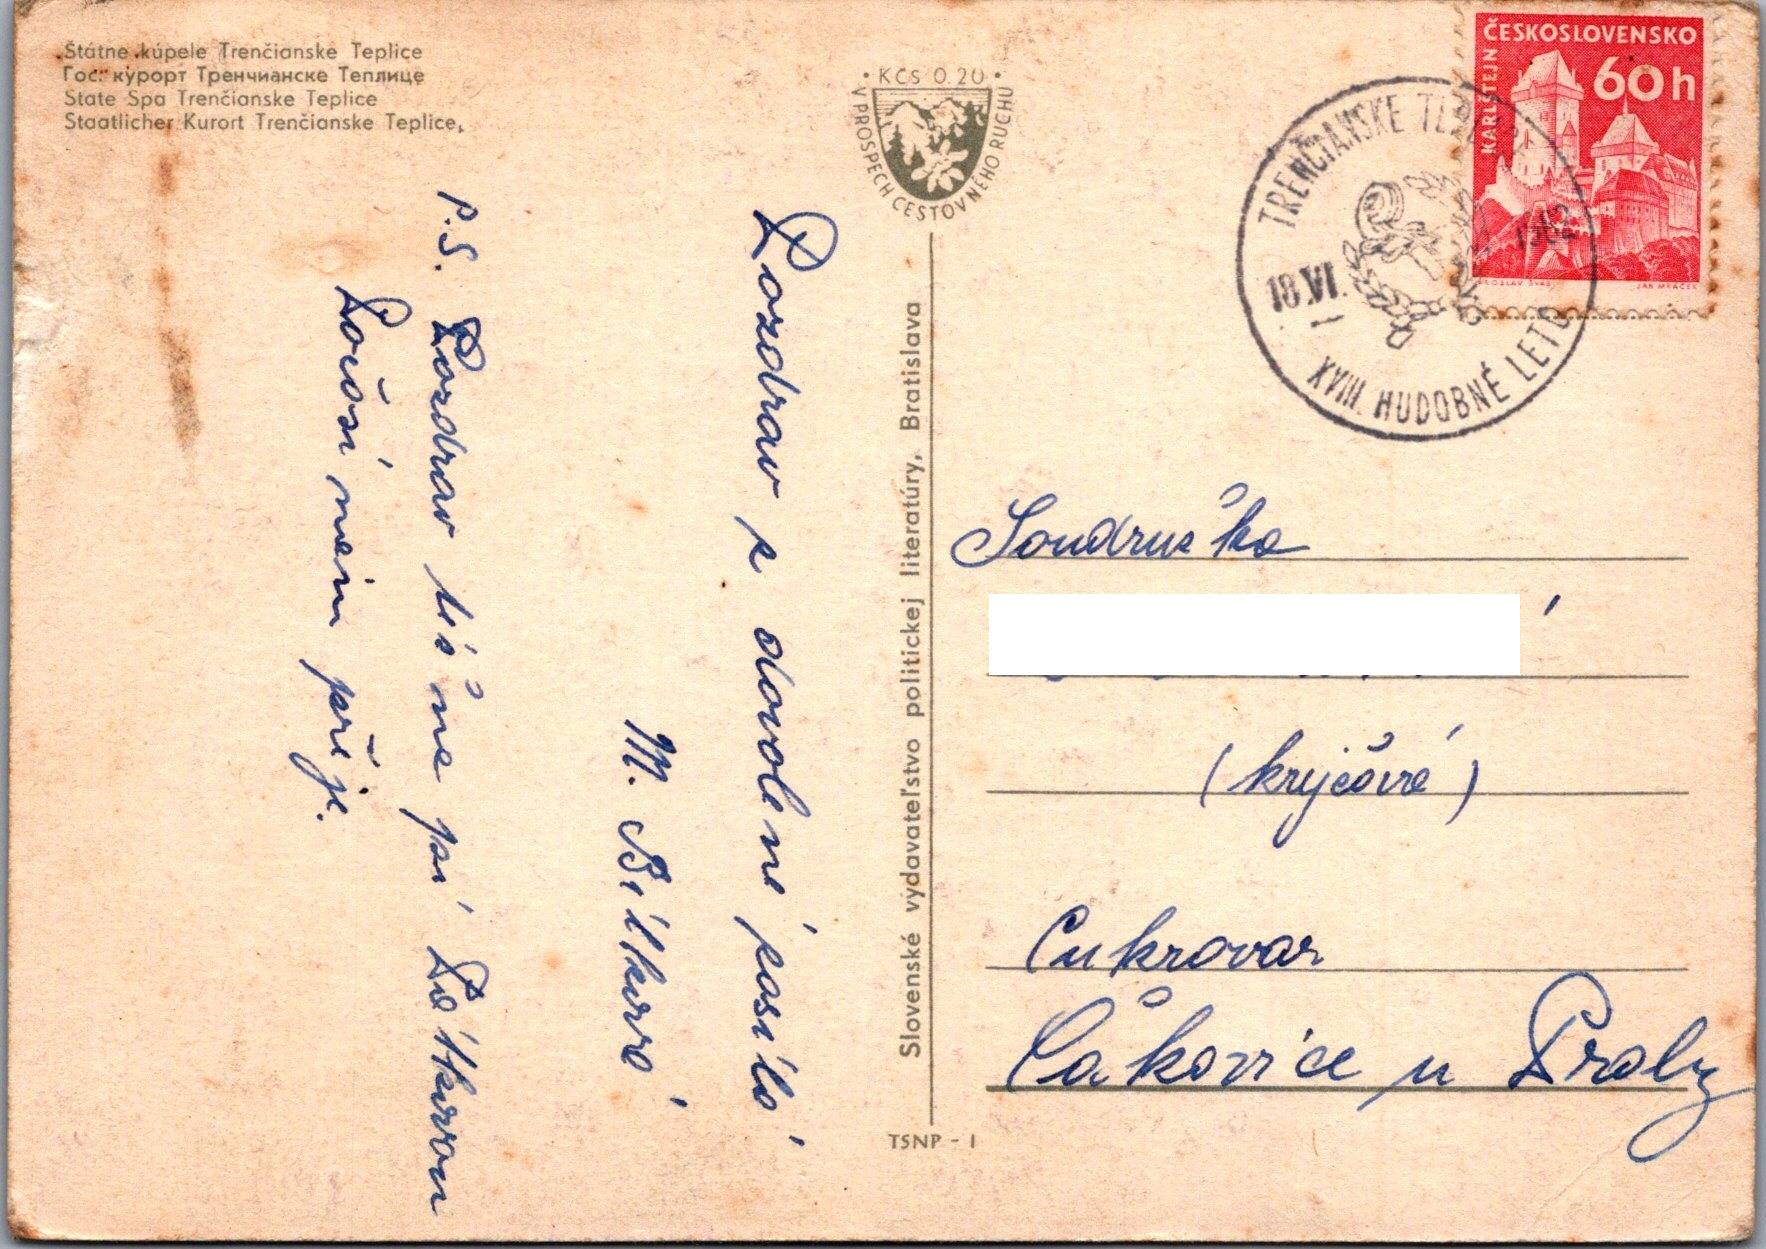 Štátne kúpele Trenčianske Teplice
Гос. курорт Тренчианске Теплице
State Spa Trenčianske Teplice
Staatlicher Kurort Trenčianske Teplice,
• KČS 0.20 •
V PROSPECH CESTOVNÉHO RUCHU
ČESKOSLOVENSKO
60h
KARLŠTEJN
JAROSLAV ŠVÁB
JAN MRÁČEK
TRENČIANSKE TEPLICE
18.VI. 1962
XVIII. HUDOBNÉ LETO
Pozdrav z dovolené posílá
M. Bílková
P.S. Pozdrav též na pí
Počasí nám přeje.
Slovenské vydavateľstvo politickej literatúry, Bratislava
TSNP - 1
Soudružka
(krejčová)
Cukrovar
Čakovice u Prahy